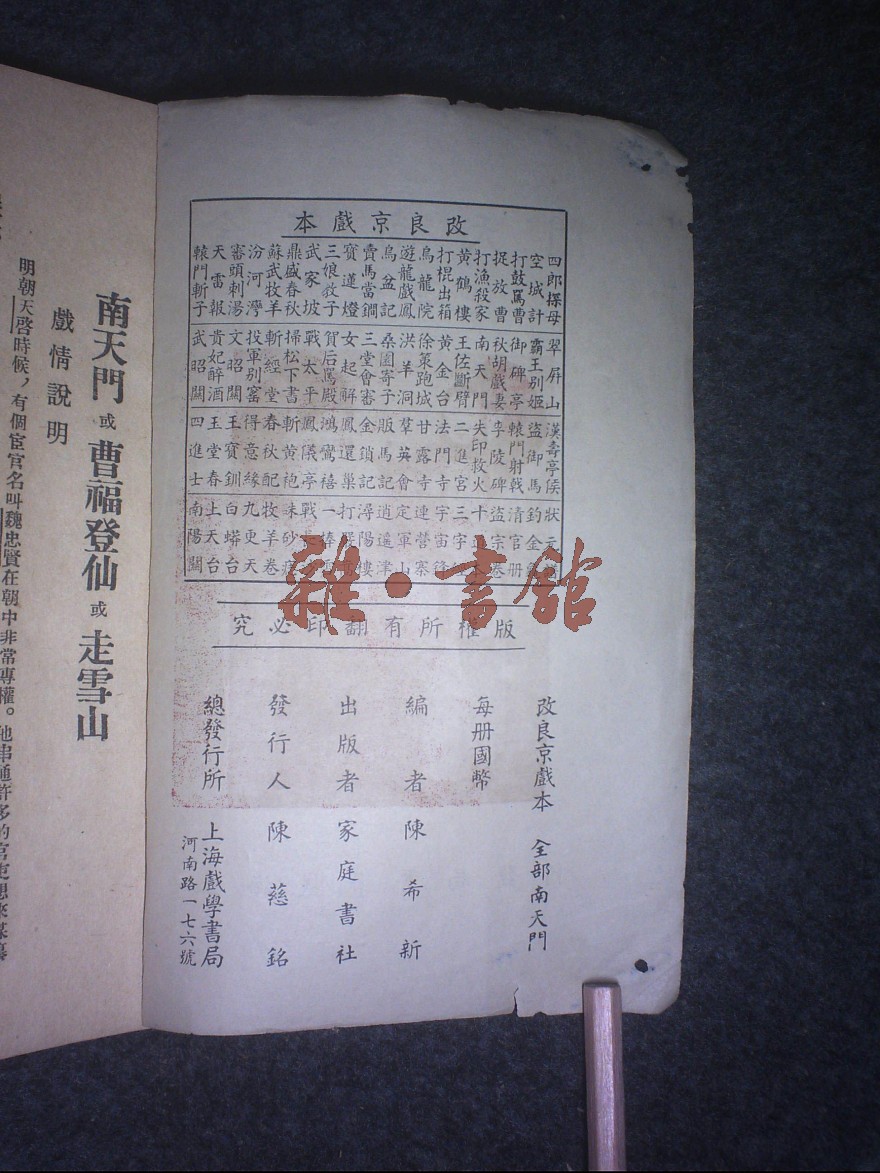 改良京戲本
四郎探母
空城計
打鼓罵曹
捉放曹
打漁殺家
黃鶴樓
打棍出箱
烏龍院
遊龍戲鳳
烏盆記
賣馬當鐧
寶蓮燈
三娘教子
武家坡
鼎盛春秋
蘇武牧羊
汾河灣
審頭刺湯
天雷報
轅門斬子
翠屏山
霸王别姬
御碑亭
秋胡戲妻
南天門
王佐斷臂
黃金台
徐策跑城
洪羊洞
桑園寄子
三堂會審
女起解
賀后罵殿
戰太平
掃松下書
斬經堂
投軍别窰
文昭關
貴妃醉酒
武昭關
漢壽亭侯
盜御馬
轅門射戟
李陵碑
失印救火
二進宮
法門寺
甘露寺
羣英會
販馬記
金鎖記
鳳還巢
鴻鸞禧
鳳儀亭
斬黃袍
春秋配
得意緣
王寶釧
玉堂春
四進士
狀元
釣金
清官册
盜宗卷
十
三字
宇宙鋒
連營寨
定軍山
逍遙津
潯陽樓
打
一捧雪
戰長
硃砂痣
牧羊卷
九更天
白蟒台
上天台
南陽關
版權所有翻印必究
改良京戲本 全部南天門
每册國幣
編者 陳希新
出版者 家庭書社
發行人 陳慈銘
總發行所 上海戲學書局
河南路一七六號
雜·書館
南天門 或 曹福登仙 或 走雪山
戲情說明
明朝天啓時候，有個宦官名叫魏忠賢在朝中非常專權。他串通許多的官吏想來謀